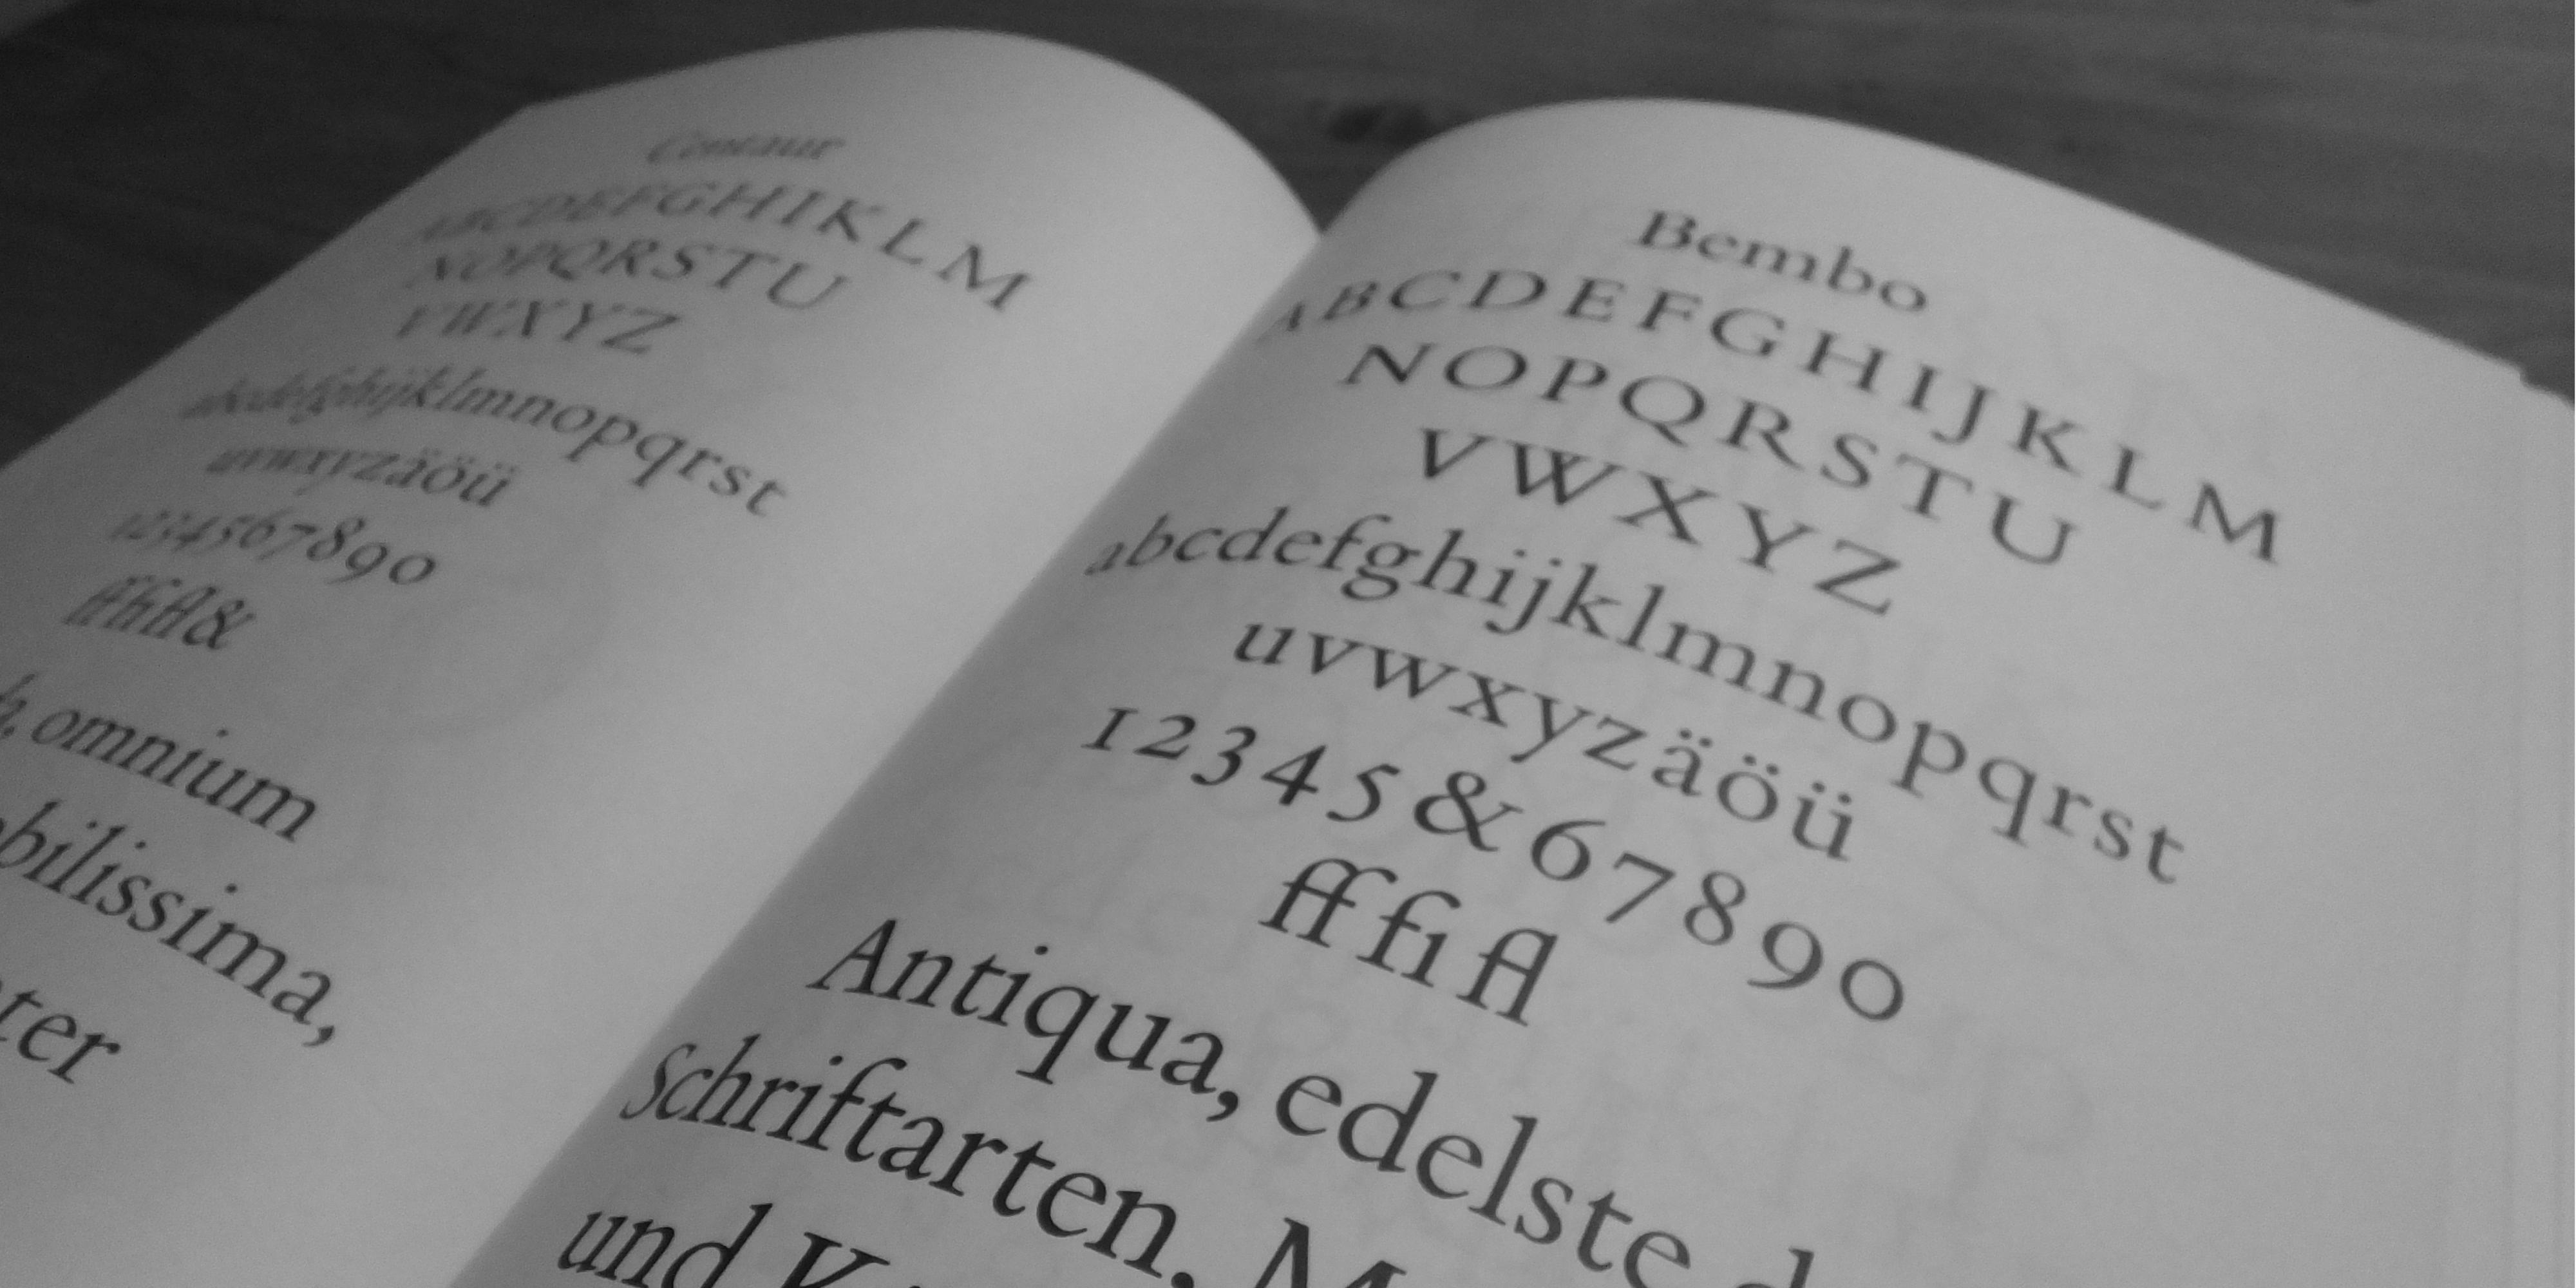 Centaur
ABCDEFGHIKLM
NOPQRSTU
VWXYZ
abcdefghijklmnopqrst
uvwxyzäöü
1234567890
fffifl&
omnium
bilissima,
ter
Bembo
ABCDEFGHIJKLM
NOPQRSTU
VWXYZ
abcdefghijklmnopqrst
uvwxyzäöü
12345&67890
ff fi fl
Antiqua, edelste
Schriftarten,
und